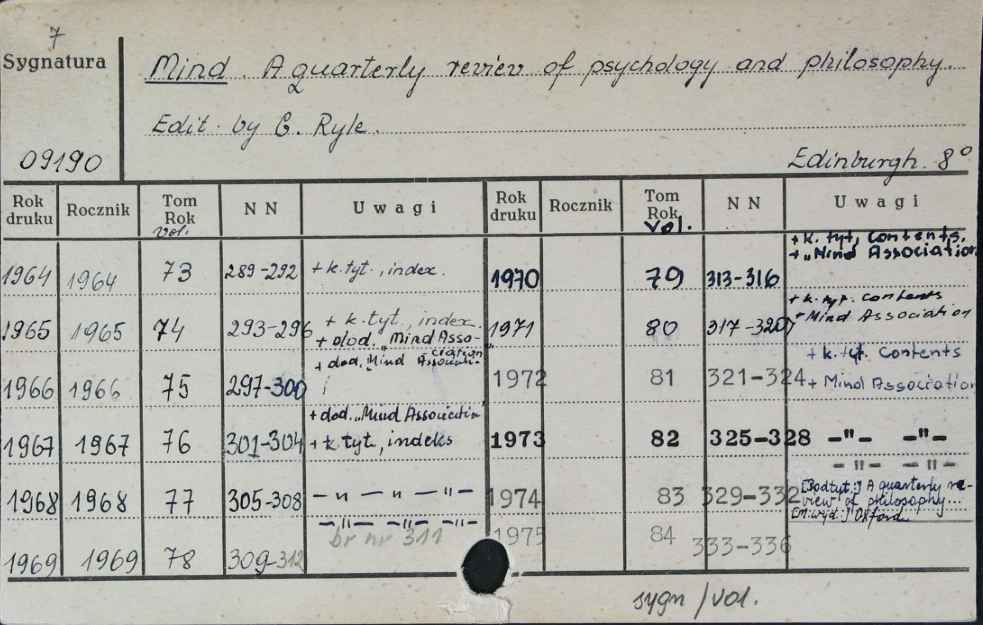 7
Sygnatura
Mind. A quarterly review of psychology and philosophy.
Edit. by G. Ryle.
09190
Edinburgh. 8°
Rok druku Rocznik Tom Rok vol. N N Uwagi Rok druku Rocznik Tom Rok vol. N N Uwagi
1964 1964 73 289-292 + k. tyt., index.
1970 79 313-316 + k. tyt, contents, + „Mind Association
1965 1965 74 293-296 + k. tyt, index. + dod. „Mind Association
1971 80 317-320 + k. tyt. contents "Mind Association
1966 1966 75 297-300 + dod. „Mind Associati-
1972 81 321-324 + k. tyt. Contents + Mind Association
1967 1967 76 301-304 + dod. „Mind Association + k. tyt, indeks
1973 82 325-328 -"- -"-
1968 1968 77 305-308 - " - " - " -
1974 83 329-332 -"- -"- [Podtyt:] A quarterly re-
view of philosophy.
[M. wyd:] Oxford
1969 1969 78 309-312 -"- -"- -"- br nr 311
1975 84 333-336
sygn / vol.